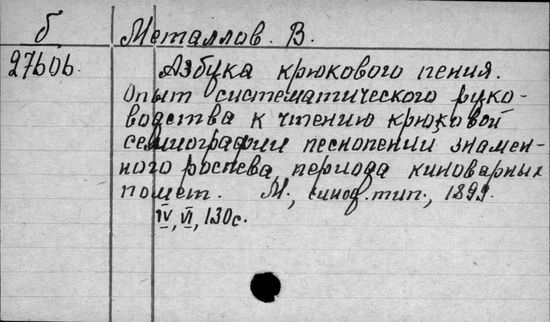 б Металлов. В.
27606. Азбука крюкового пения.
Опыт систематического руко-
водства к чтению крюковой
семиографии песнопений знамен-
ного роспева, периода киноварных
помет. М., синод. тип., 1899.
IV, VI, 130с.